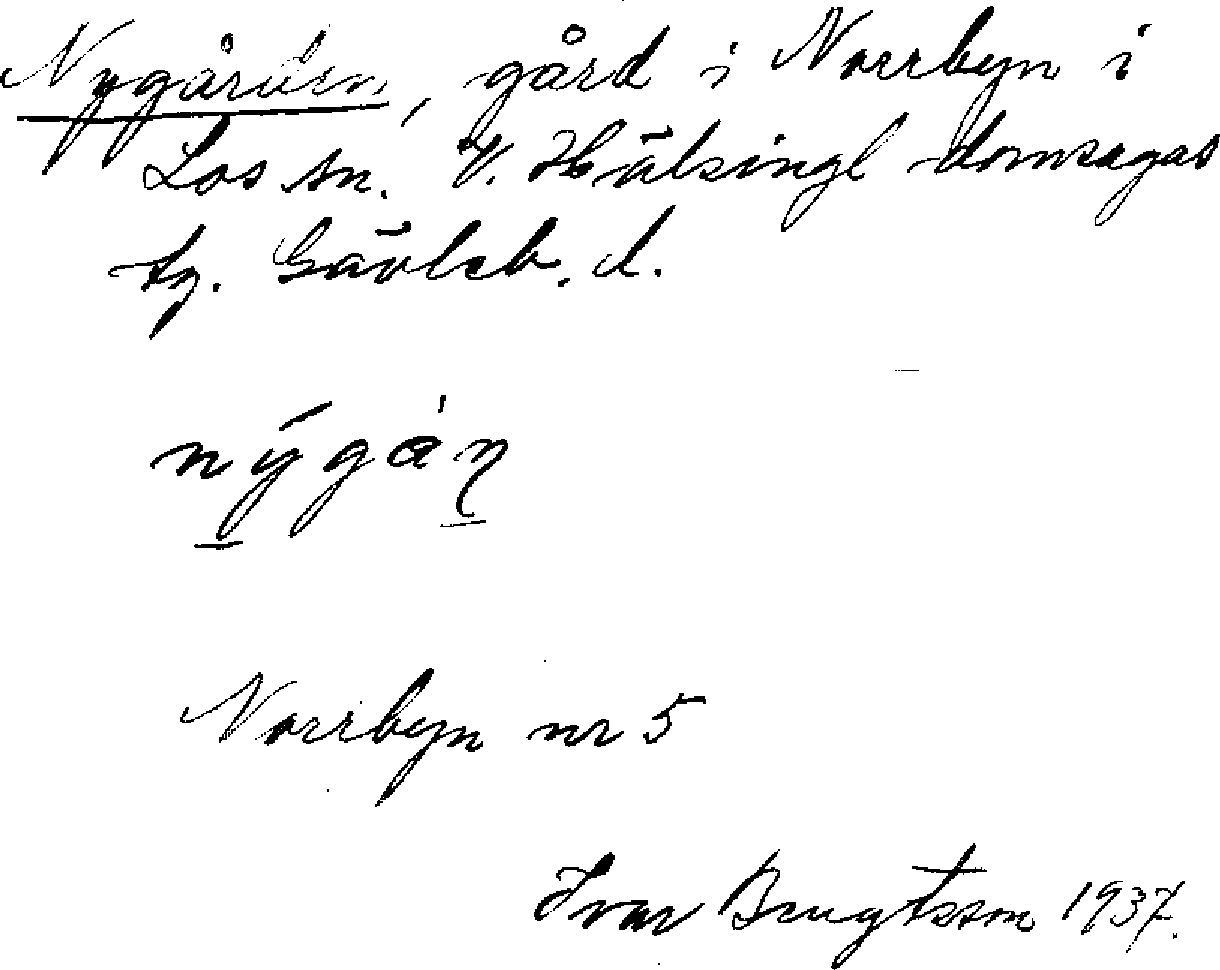 Nygården, gård i Norrbyn i
Los sn. V. Hälsingl domsagas
tg. Gävleb. l.
nýgán
Norrbyn nr 5
Ivar Bengtsson 1937.